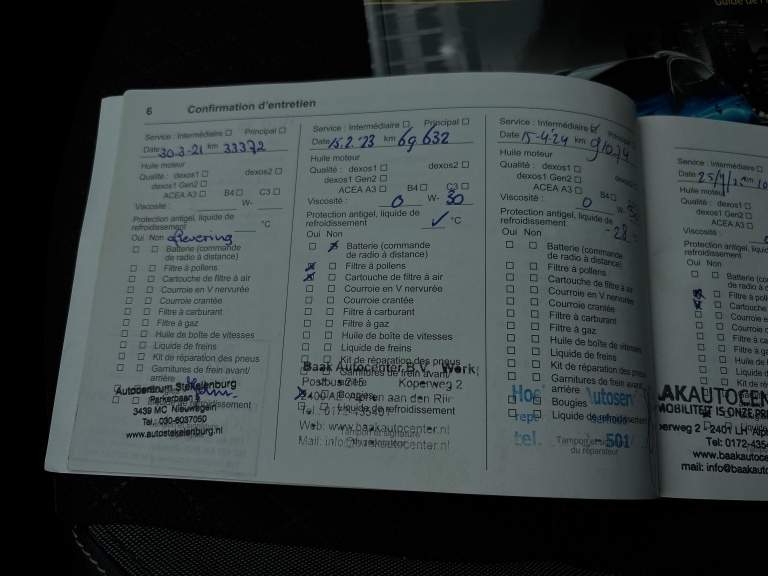 Guide de l'
6 Confirmation d'entretien
Service : Intermédiaire Principal
Date 30-3-21 km 33372
Huile moteur
Qualité : dexos1 dexos2
dexos1 Gen2
ACEA A3 B4 C3
Viscosité : W-
Protection antigel, liquide de
refroidissement °C
Oui Non Levering
Batterie (commande
de radio à distance)
Filtre à pollens
Cartouche de filtre à air
Courroie en V nervurée
Courroie crantée
Filtre à carburant
Filtre à gaz
Huile de boîte de vitesses
Liquide de freins
Kit de réparation des pneus
Garnitures de frein avant/
arrière
Autocentrum Stekelenburg
Parkerbaan
3439 MC Nieuwegein
Tel.: 030-6037050
www.autostekelenburg.nl
Service : Intermédiaire Principal
Date 15.2.'23 km 69 632
Huile moteur
Qualité : dexos1 dexos2
dexos1 Gen2
ACEA A3 B4 C3
Viscosité : 0 W- 30
Protection antigel, liquide de
refroidissement °C
Oui Non
Batterie (commande
de radio à distance)
Filtre à pollens
Cartouche de filtre à air
Courroie en V nervurée
Courroie crantée
Filtre à carburant
Filtre à gaz
Huile de boîte de vitesses
Liquide de freins
Kit de réparation des pneus
Garnitures de frein avant/
Baak Autocenter B.V.
Postbus 215 Koperweg 2
Bougies
Alphen aan den Rijn
Liquide de refroidissement
Web: www.baakautocenter.nl
Mail: info@baakautocenter.nl
Service : Intermédiaire
Date 15-4-'24 km
Huile moteur
Qualité : dexos1
dexos1 Gen2
ACEA A3 B4
Viscosité : 0 W-
Protection antigel, liquide de
refroidissement -28
Oui Non
Batterie (commande
de radio à distance)
Filtre à pollens
Cartouche de filtre à air
Courroie en V nervurée
Courroie crantée
Filtre à carburant
Filtre à gaz
Huile de boîte de vitesses
Liquide de freins
Kit de réparation des pneus
Garnitures de frein avant/
arrière
Bougies
Liquide de refroidissement
tel. 501
du réparateur
Service : Intermédiaire
Date
Huile moteur
Qualité : dexos1
dexos1 Gen2
ACEA A3
Viscosité :
Protection antigel, liquide
refroidissement
Oui Non
de radio à
Filtre à
Cartouche
Courroie
Courroie
Filtre à
Filtre à
Huile
Liquide
Kit de
AAKAUTOCEN
MOBILITEIT IS ONZE
perweg 2 - 2401 LH
Tel: 0172-435
www.baakautoce
mail: info@baakauto